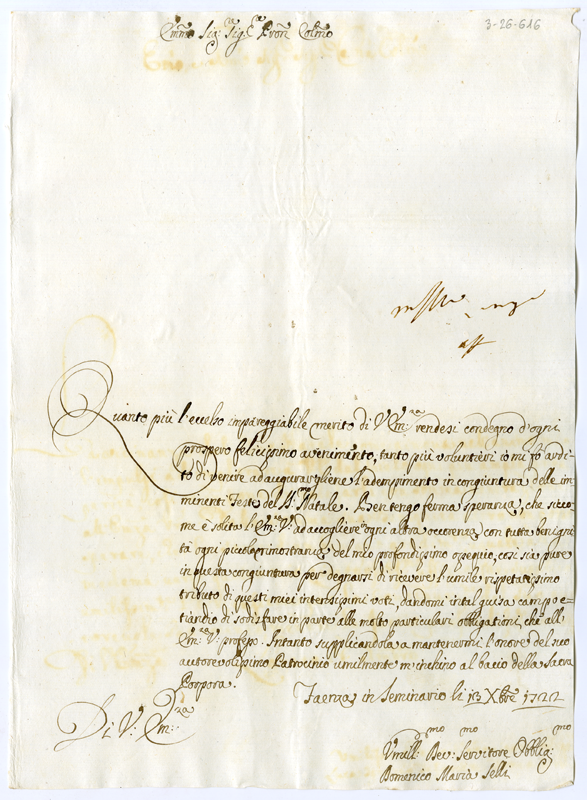 3-26-616
Em̃o Sig.r Sig.r Pron Colmo
Quanto più l'eccelso impareggiabile merito di V. Em.za rendesi condegno d'ogni
prospero felicissimo avenimento, tanto più voluntieri io mi fò ardi-
to di venire ad augurargliene l'adempimento in congiuntura delle im-
minenti Feste del S.mo Natale. Ben tengo ferma speranza, che sicco-
me è solita l'Em.za V.a ad accogliere in ogni altra occorenza con tutta benigni-
tà ogni picciola rimostranza del mio profondissimo ossequio, così sia pure
in questa congiuntura per degnarsi di ricevere l'umile rispetatissimo
tributo di questi miei intensissimi voti, dandomi in tal guisa campo e-
tiandio di sodisfare in parte alle molto particulari obligationi, che all'
Em.za V.a professo. Intanto supplicandola a mantenermi l'onore del suo
autorevolissimo Patrocinio umilmente m'inchino al bacio della Sacra
Porpora.
Faenza in Seminario li 13 Xbre 1722
Di V.a Em.za
Umill.mo Dev.mo Servitore Obblig.mo
Domenico Maria Selli